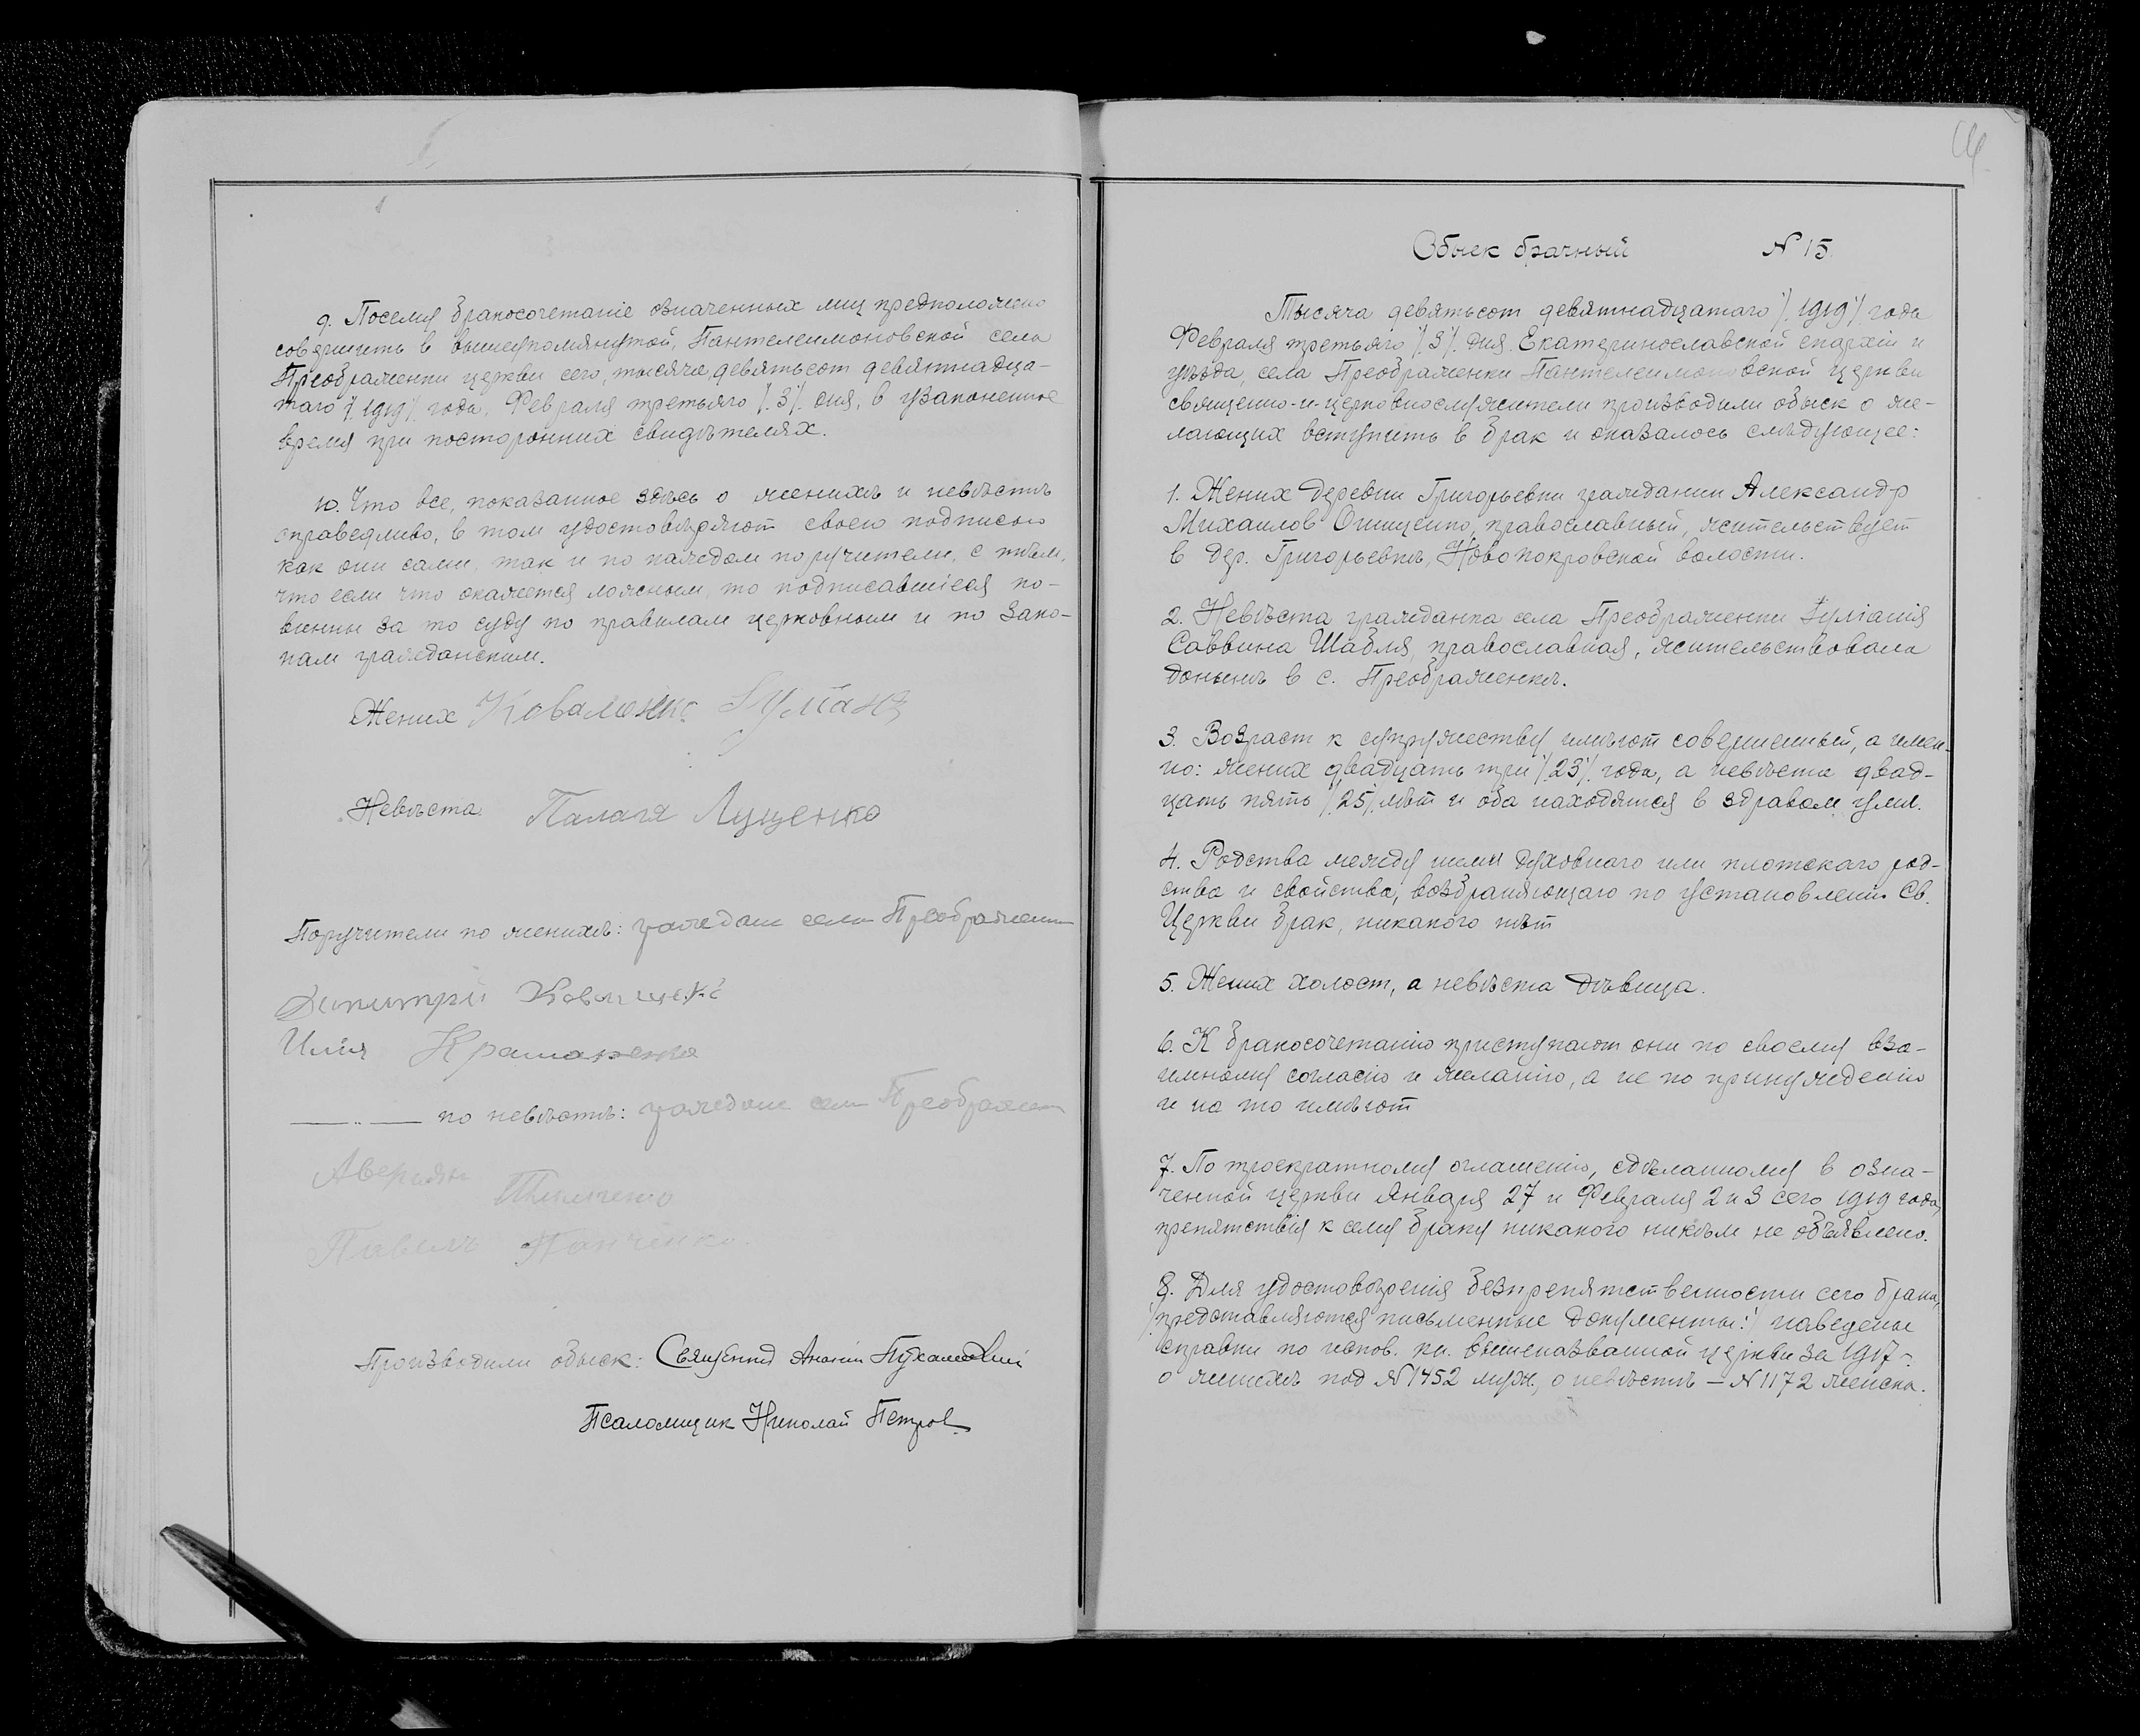 9. Посему бракосочетаніе означенных лиц предположено
совершить в вышеупомянутой, Пантелеимоновской села
Преображенки церкви сего, тысяча девятьсот девятнадца-
таго /:1919:/ года, Февраля третьяго /:3:/ дня, в узаконенное
время при посторонних свидѣтелях.
10. Что все, показанное здѣсь о женихѣ и невѣстѣ
справедливо, в том удостовѣряют своею подписью
как они сами, так и по каждом поручители, с тѣм,
что если что окажется ложным, то подписавшіеся по-
винны за то суду по правилам церковным и по зако-
нам гражданским.
Жених Коваленко
Невѣста Палагя Луценко
Поручители по женихѣ: граждане села Преображенки
Димитрій
Илія
—„— по невѣстѣ: граждане села Преображенки
Аверьян
Павелъ Панченко
Производили обыск: Священник
Псаломщик Николай Петров
Обыск брачный № 15.
Тысяча девятьсот девятнадцатаго /:1919:/ года
Февраля третьяго /:3:/ дня. Екатеринославской епархіи и
уѣзда, села Преображенки Пантелеимоновской церкви
священно-и-церковнослужители производили обыск о же-
лающих вступить в брак и оказалось слѣдующее:
1. Жених деревни Григорьевки гражданин Александр
Михаилов Онищенко, православный, жительствует
в дер. Григорьевкѣ, Новопокровской волости.
2. Невѣста гражданка села Преображенки Іуліанія
Саввина Шабля, православная, жительствовала
донынѣ в с. Преображенкѣ.
3. Возраст к супружеству имѣют совершенный, а имен-
но: жених двадцать три /:23:/ года, а невѣста двад-
цать пять /:25:/ лѣт и оба находятся в здравом умѣ.
4. Родства между ними духовнаго или плотскаго род-
ства и свойства, возбраняющаго по установленію Св.
Церкви брак, никакого нѣт
5. Жених холост, а невѣста дѣвица.
6. К бракосочетанію приступают они по своему вза-
имному согласію и желанію, а не по принужденію
и на то имѣют
7. По троекратному оглашенію, сдѣланному в озна-
ченной церкви Января 27 и Февраля 2 и 3 сего 1919 года,
препятствія к сему браку никакого никѣм не объявлено.
8. Для удостовѣренія безпрепятственности сего брака,
/:представляются письменные документы:/ наведены
справки по испов. кн. вышеназванной церкви за 1917 г.
о женихѣ под № 1452 мужс., о невѣстѣ — № 1172 женска.